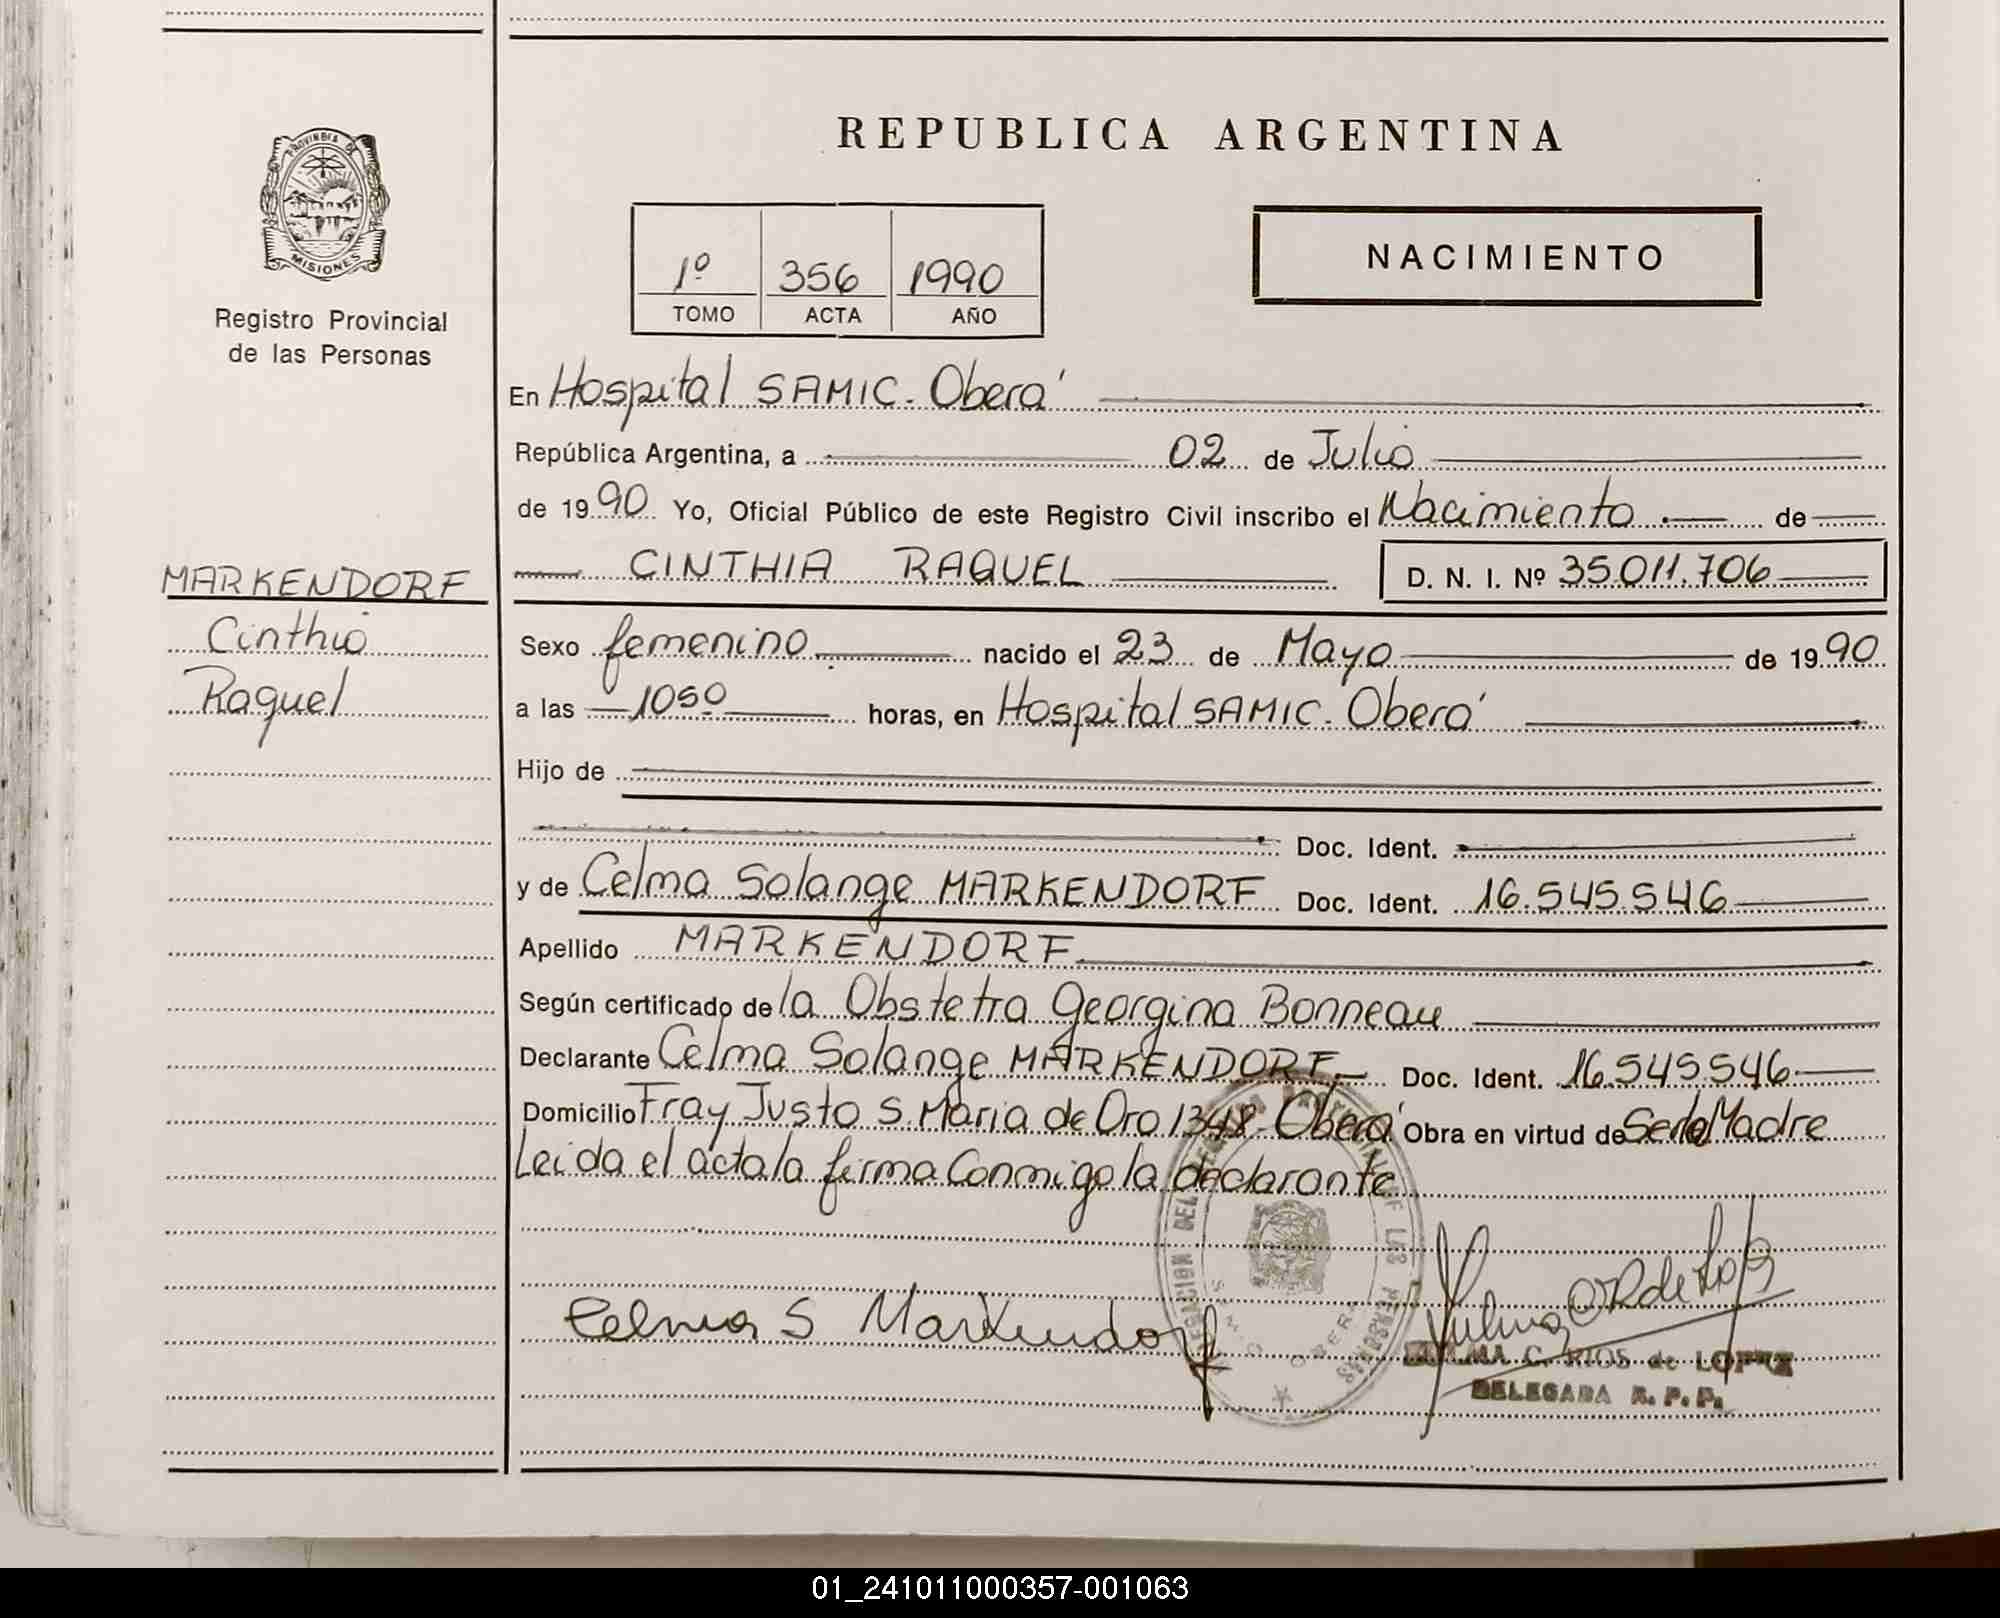 REPUBLICA ARGENTINA
PROVINCIA DE
MISIONES
Registro Provincial
de las Personas
1º 356 1990
TOMO ACTA AÑO
NACIMIENTO
En Hospital SAMIC. Oberá
República Argentina, a 02 de Julio
de 1990 Yo, Oficial Público de este Registro Civil inscribo el Nacimiento de
CINTHIA RAQUEL D. N. I. Nº 35.011.706
MARKENDORF
Cinthia
Raquel
Sexo femenino nacido el 23 de Mayo de 1990
a las 10⁵⁰ horas, en Hospital SAMIC. Oberá
Hijo de
Doc. Ident.
y de Celma Solange MARKENDORF Doc. Ident. 16.545.546
Apellido MARKENDORF
Según certificado de la Obstetra Georgina Bonneau
Declarante Celma Solange MARKENDORF.- Doc. Ident. 16.545.546
Domicilio Fray Justo S. Maria de Oro 1348- Oberá Obra en virtud de Ser la Madre
Leida el acta la firma Conmigo la declarante
Celma S Markendorf
C. RIOS de LOPEZ
DELEGADA R. P. P.
01_241011000357-001063